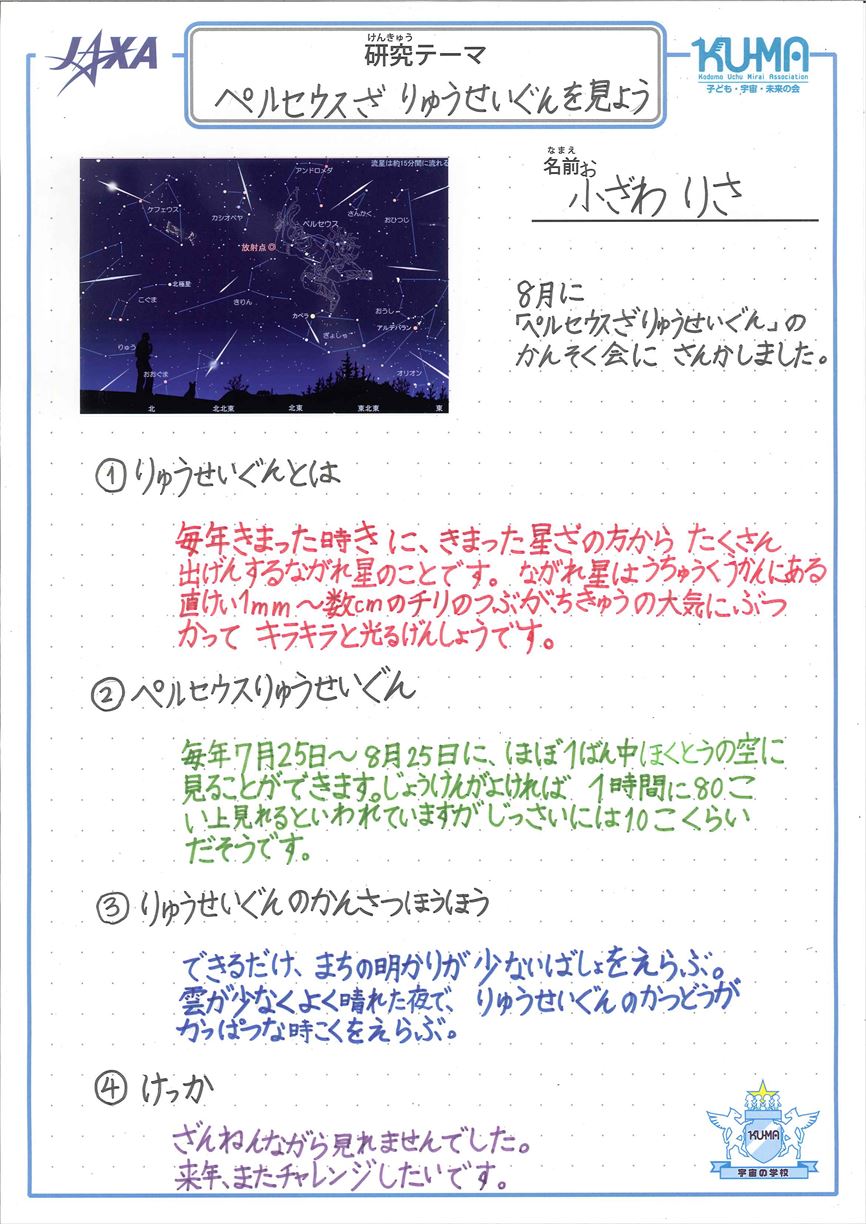 JAXA
けんきゅう
研究テーマ
ペルセウスざ りゅうせいぐんを見よう
KU-MA
Kodomo Uchu Mirai Association
子ども・宇宙・未来の会
なまえ
名前お
小ざわ りさ
流星は約15分間に流れる
アンドロメダ
ケフェウス
カシオペヤ
ペルセウス
さんかく
おひつじ
放射点
北極星
こぐま
きりん
カペラ
おうし
アルデバラン
ぎょしゃ
りゅう
おおぐま
オリオン
北
北北東
北東
東北東
東
8月に
「ペルセウスざりゅうせいぐん」の
かんそく会に さんかしました。
① りゅうせいぐんとは
毎年きまった時きに、きまった星ざの方から たくさん
出げんするながれ星のことです。 ながれ星はうちゅうくうかんにある
直けい1mm〜数cmのチリのつぶが、ちきゅうの大気にぶつ
かって キラキラと光るげんしょうです。
② ペルセウスりゅうせいぐん
毎年7月25日〜8月25日に、ほぼ1ばん中ほくとうの空に
見ることができます。じょうけんがよければ 1時間に80こ
い上見れるといわれていますが じっさいには10こくらい
だそうです。
③ りゅうせいぐんのかんさつほうほう
できるだけ、まちの明かりが 少ないばしょをえらぶ。
雲が少なくよく晴れた夜で、 りゅうせいぐんのかつどうが
かっぱつな時こくをえらぶ。
④ けっか
ざんねんながら見れませんでした。
来年、またチャレンジしたいです。
KU-MA
宇宙の学校